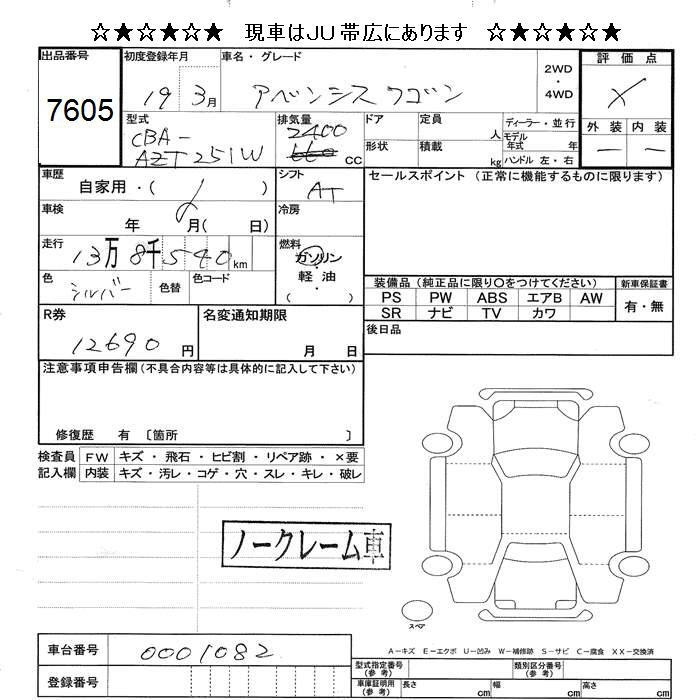 ☆★☆★☆★☆ 現車はJU帯広にあります ☆★☆★☆★☆
出品番号 初度登録年月 車名・グレード 2WD・4WD 評価点
7605 19 3月 アベンシスワゴン X
型式 排気量 ドア 定員 人 ディーラー・並行 外装 内装
CBA- 2400 モデル年式 年 — —
AZT251W 660 CC 形状 積載 kg ハンドル 左・右
車歴 自家用・( ) シフト AT セールスポイント (正常に機能するものに限ります)
車検 年 月( 日) 冷房
走行 13万 8千 540 km 燃料 ガソリン・軽油 ( )
色 シルバー 色替 色コード
装備品 (純正品に限り○をつけてください) 新車保証書
PS PW ABS エアB AW 有・無
SR ナビ TV カワ
R券 12690 円 名変通知期限 月 日 後日品
注意事項申告欄 (不具合内容等は具体的に記入して下さい)
修復歴 有 〔箇所 〕
検査員 FW キズ・飛石・ヒビ割・リペア跡・×要
記入欄 内装 キズ・汚レ・コゲ・穴・スレ・キレ・破レ
ノークレーム車
スペア
A－キズ E－エクボ U－凹み W－補修跡 S－サビ C－腐食 XX－交換済
車台番号 0001082
型式指定番号 (参考) 類別区分番号 (参考)
登録番号 車庫証明用 (参考) 長さ cm 幅 cm 高さ cm